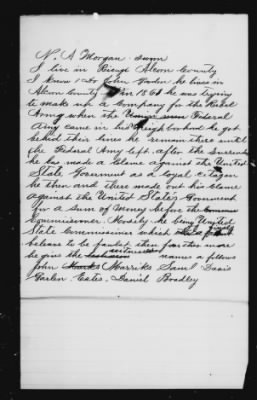 N. A Morgan. sworn
I live in Rienzi Alcorn County
I know John he lives in
Alcorn County in 1861 he was trying
to make up a Company for the Rebel
Army when the Federal
Amy came in his Neighborhood he got
behind their lines he remain there until
the Federal Army left. after the Surrender
he has made a Claime against the United
State Goverment as a loyal citizen
he then and there made out his Claime
against the United States Goverment
for a sum of Money before the
Commissioner. he being United
State Commissioner which
beleave to be further more
he give the witnesses names as follows
John Marriks Saml Davis
Bradley